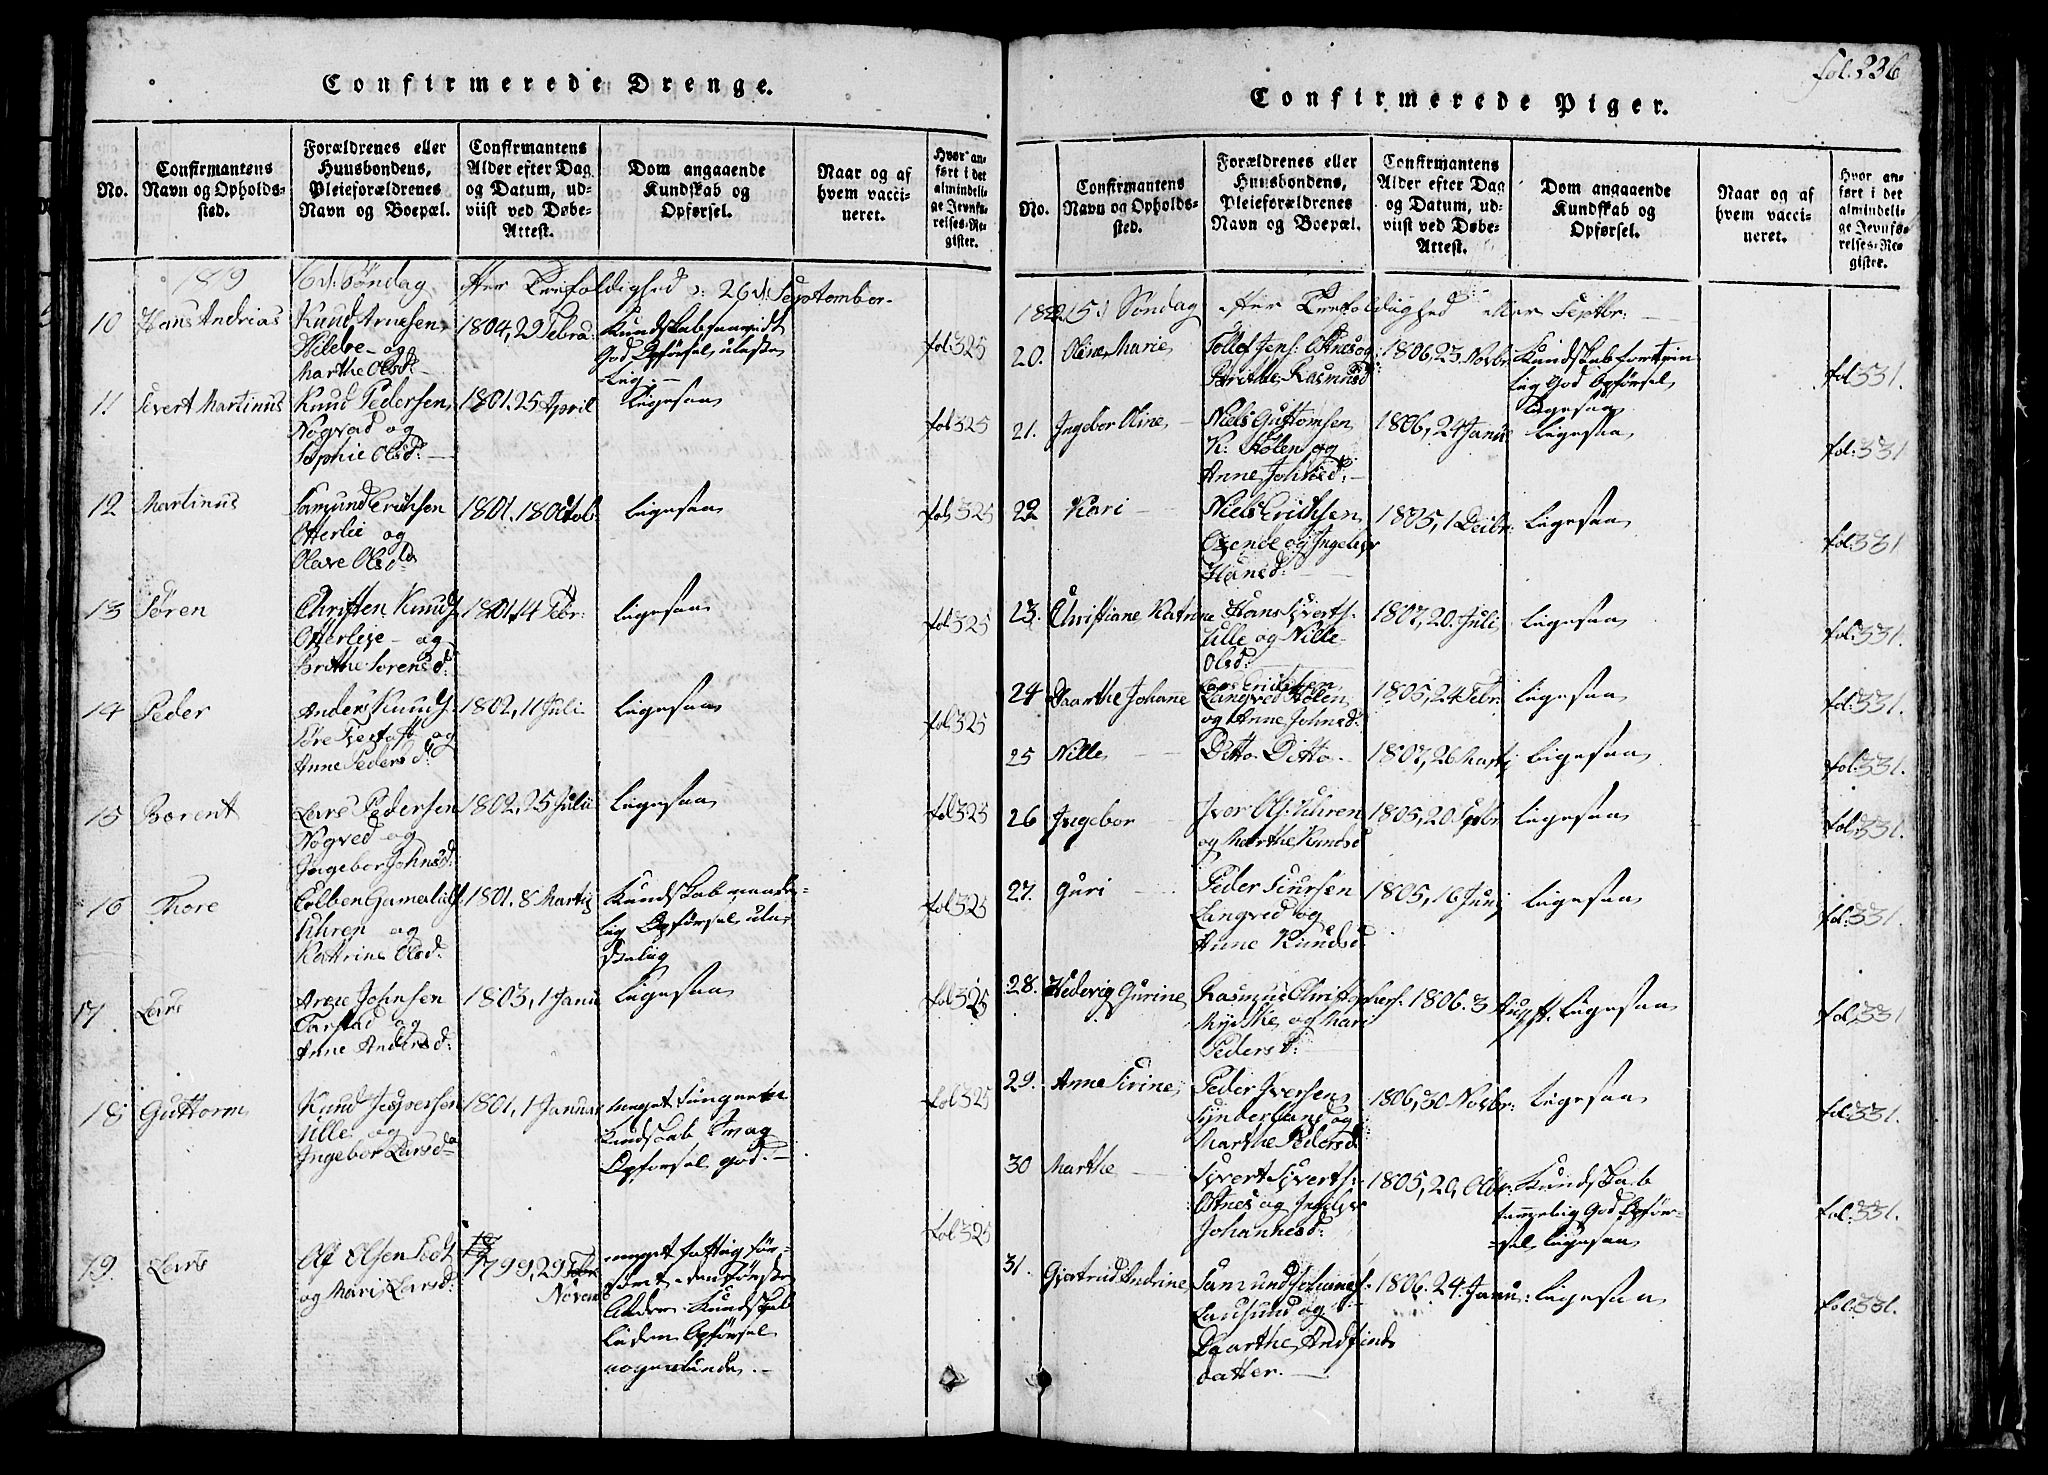 Confirmerede Drenge.
No.
Confirmantens
Navn og Opholds-
sted.
Forældrenes eller
Huusbondens,
Pleieforældrenes
Navn og Boepæl.
Confirmantens
Alder efter Dag
og Datum, ud-
viist ved Døbe-
Attest.
Dom angaaende
Kundskab og
Opførsel.
Naar og af
hvem vacci-
neret.
Hvor an-
ført i det
almindeli-
ge Jevnfø-
relses-Re-
gister.
1819 Søndag efter Trefoldighed 26 d. September
10 Hans Andrias
Knud Arnesen
Hildre og
Marthe Olsd:
1804, 29 Febru:
Kundskab
God Opførsel ulaste-
lig.
fol: 325
11 Sivert Martinus
Knud Pedersen
Nogvad og
Sophie Olsd:
1801. 25 April
Ligesaa
fol 325
12 Martinus
Samund Erichsen
Otterlie og
Olave Olsd
1801. 18 Octob
Ligesaa
fol: 325
13 Søren
Christen Knuds
Otterleje og
Brithe Sorensd:
1801, 14 Febr:
Ligesaa
fol: 325
14 Peder
Anders Knuds
og
Anne Pedersd:
1802, 11 Juli
Ligesaa
fol: 325
15 Barent
Lars Pedersen
Nogved og
Ingebor Johnsd:
1802, 25 Julii
Ligesaa
fol 325
16 Thore
Colben Gamaliels
Uhren og
Katrine Olsd:
1801. 8 Martis
Kundskab maade-
lig Opførsel ula-
stelig
fol: 325
17 Lars
Arne Johnsen
Tarstad og
Anne Andersd:
1803, 1 Janu
Ligesaa
fol: 325
18 Guttorm
Knud Jespersen
Ulle og
Ingebor Larsd
1801, 1 Januar
meget
Kundskab Svag
Opførsel god.
fol: 325
19. Lars
Ole Olsen
og Mari Larsd:
1799, 29 Febr
Novem
meget fattig
Alder Kundskab
Liden Opførsel
nogenlunde.
fol 325
fol. 236
Confirmerede Piger.
No.
Confirmantens
Navn og Opholds-
sted.
Forældrenes eller
Huusbondens,
Pleieforældrenes
Navn og Boepæl.
Confirmantens
Alder efter Dag
og Datum, ud-
viist ved Døbe-
Attest.
Dom angaaende
Kundskab og
Opførsel.
Naar og af
hvem vacci-
neret.
Hvor an-
ført i det
almindeli-
ge Jevnfø-
relses-Re-
gister.
Søndag efter Trefoldighed Septbr:
20. Oline Marie
Tollef Jens: Østnes og
Brithe Rasmusd
1806, 25 Novbr
Kundskab fortrin
lig God Opførsel
Ligesaa
fol 331.
21. Ingebor Oline
Niels Guttormsen
K: Hølen og
Anne Johnsd:
1806, 24 Janu
Ligesaa
fol: 331
22 Kari
Niels Erichsen
og Ingebor
Hansd:
1805, 1 Decbr:
Ligesaa
fol: 331
23. Christiane Katrine
Hans Siverts:
Ulle og Nille
Olsd:
1807, 20. Juli
Ligesaa
fol: 331.
24 Maarthe Johane
Lars Erichsen
Langved Hølen
og Anne Johnsd:
1805, 24 Febr:
Ligesaa
fol: 331.
25 Nille
Ditto Ditto
1807, 26 Marti
Ligesaa
fol: 331.
26 Ingebor
Iver Ols: Uhren
og Marthe Knudsd
1805, 20 Septbr
Ligesaa
fol: 331.
27. Guri
Peder Siursen
Langved og
Anne Knudsd
1805, 16 Junj
Ligesaa
fol: 331.
28. Hedevig Gurine
Rasmus Christophers:
og Mari
Pedersd:
1806. 3 August
Ligesaa
fol: 331
29. Anne Sirine
Peder Iversen
Synderland og
Marthe Pedersd
1806, 30 Novbr:
Ligesaa
fol: 331.
30 Marthe
Sivert Siverts:
Østnes og Ingebor
Johannesd:
1805, 20, Octbr:
Kundskab
tammelig God Opfør-
sel Ligesaa
fol: 331.
31. Gjertrud Andrine
Samund Johannes:
Lausund og
Maarthe Andfinds
datter.
1806. 24 Janu:
Ligesaa
fol: 331.